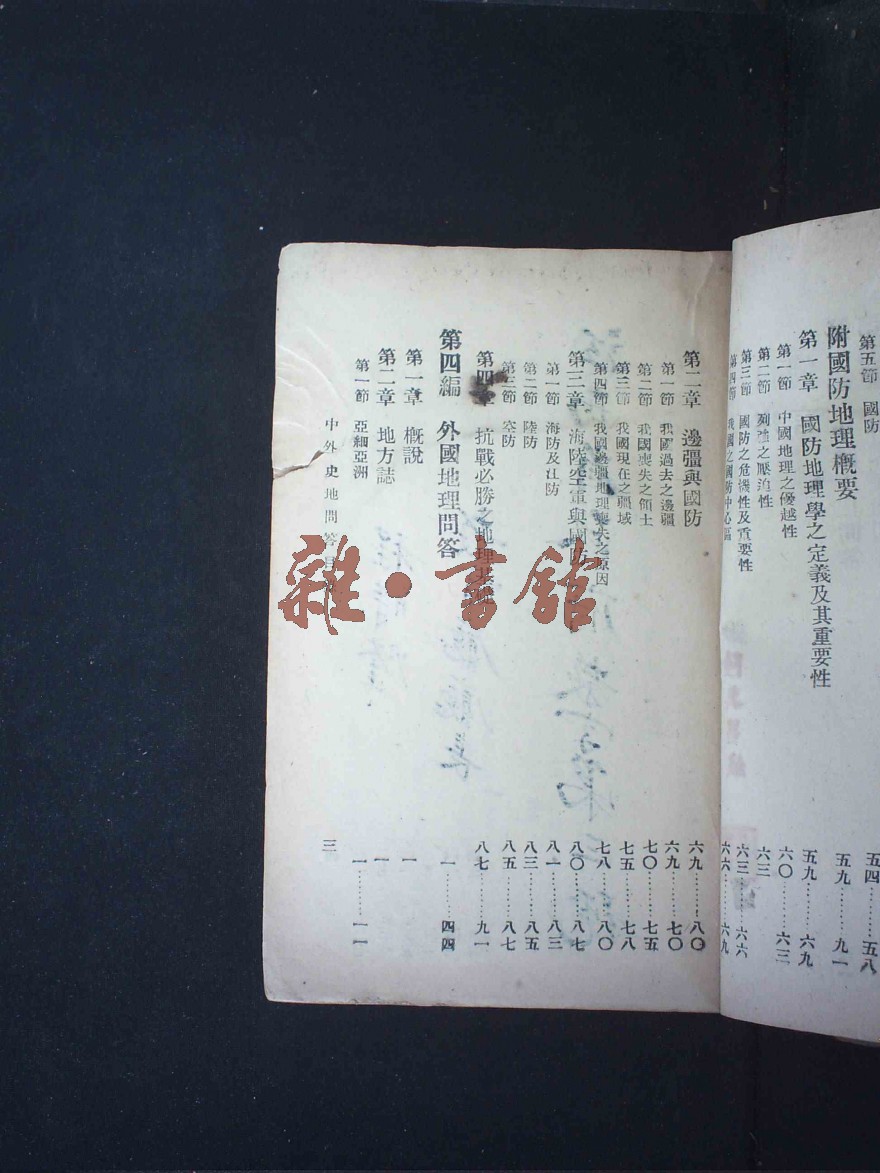 第五節 國防 五四………五八
附國防地理概要 五九………九一
第一章 國防地理學之定義及其重要性 五九………六九
第一節 中國地理之優越性 六〇………六三
第二節 列強之壓迫性 六三
第三節 國防之危機性及重要性 六三………六六
第四節 我國之國防中心區 六六………六九
第二章 邊疆與國防 六九………八〇
第一節 我國過去之邊疆 六九………七〇
第二節 我國喪失之領土 七〇………七五
第三節 我國現在之疆域 七五………七八
第四節 我國邊疆地理喪失之原因 七八………八〇
第三章 海陸空軍與國防 八〇………八七
第一節 海防及江防 八一………八三
第二節 陸防 八三………八五
第三節 空防 八五………八七
第四章 抗戰必勝之地理基礎 八七………九一
第四編 外國地理問答 一………四四
第一章 概說 一
第二章 地方誌 一
第一節 亞細亞洲 一………一一
中外史地問答目 三
雜·書館